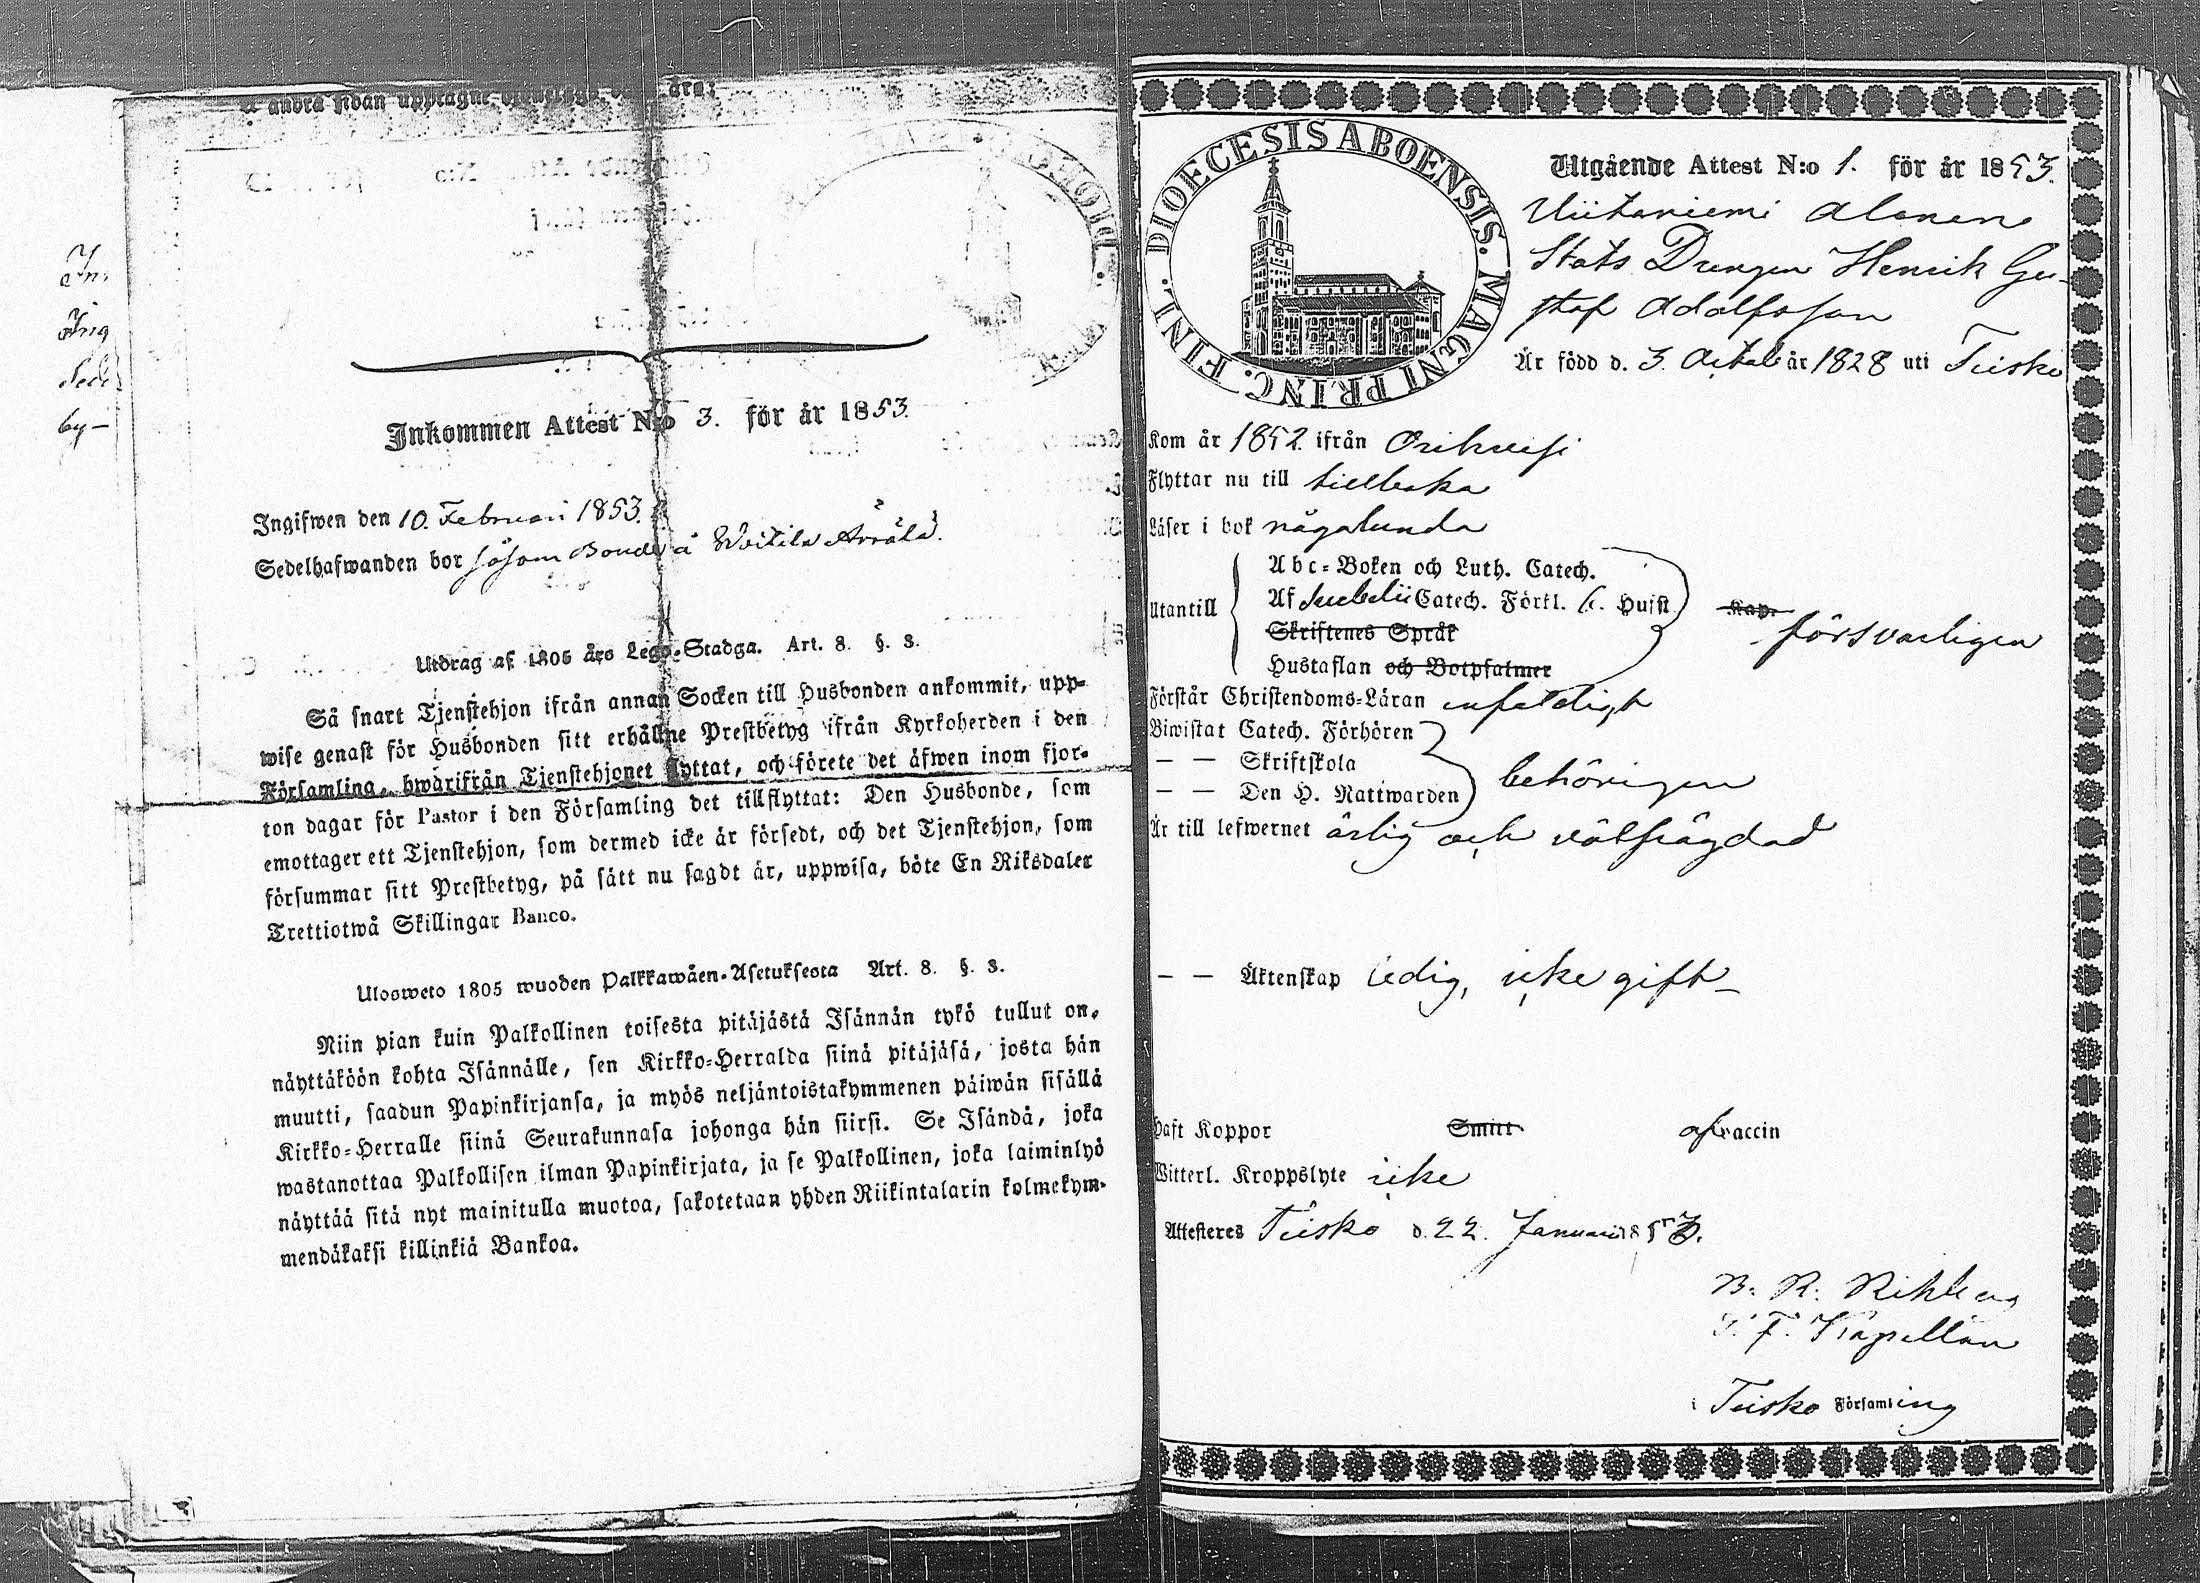 In.
Ing
Sede
by-
å andra sidan upptagne
Inkommen Attest N:o 3. för år 1853.
Ingifwen den 10. Februari 1853.
Sedelhafwanden bor såsom Bonde å Woitila Arrala.
Utdrag af 1805 års Lego-Stadga. Art. 8. §. 3.
Så snart Tjenstehjon ifrån annan Socken till Husbonden ankommit, upp-
wise genast för Husbonden sitt erhållne Prestbetyg ifrån Kyrkoherden i den
Församling, hwarifrån Tjenstehjonet flyttat, och förete det äfwen inom fjor-
ton dagar för Pastor i den Församling det tillflyttat: Den Husbonde, som
emottager ett Tjenstehjon, som dermed icke är försedt, och det Tjenstehjon, som
försummar sitt Prestbetyg, på sätt nu sagdt är, uppwisa, böte En Riksdaler
Trettiotwå Skillingar Banco.
Ulosweto 1805 wuoden Palkkawäen-Asetuksesta Art. 8. §. 3.
Niin pian kuin Palkollinen toisesta pitäjästä Isännän tykö tullut on,
näyttäköön kohta Isännälle, sen Kirkko-Herralda siinä pitäjäsä, josta hän
muutti, saadun Papinkirjansa, ja myös neljäntoistakymmenen päiwän sisällä
Kirkko-Herralle siinä Seurakunnasa johonga hän siirsi. Se Isändä, joka
wastanottaa Palkollisen ilman Papinkirjata, ja se Palkollinen, joka laiminlyö
näyttää sitä nyt mainitulla muotoa, sakotetaan yhden Riikintalarin kolmekym-
mendäkaksi killinkiä Bankoa.
DIOECESIS ABOENSIS. MAGNI PRINC. FINL.
Utgående Attest N:o 1. för år 1853.
Viitaniemi Alanen
Stats Drengen Henrik Gu-
staf Adolfsson
Är född d. 3. Octob år 1828 uti Teisko
Kom år 1852 ifrån Orihvesi
Flyttar nu till tillbaka
Läser i bok någalunda
Abc-Boken och Luth. Catech.
Utantill Af Svebelii Catech. Förkl. Husst. Kap.
försvarligen
Skriftenes Språk
Hustaflan och Botpsalmer
Förstår Christendoms-Läran enfaldigt
Biwistat Catech. Förhören
— — Skriftskola
behörigen
— — Den H. Nattwarden
Är till lefwernet ärlig och välfrägdad
— — Äktenskap ledig, icke gift
Haft Koppor Smitt af vaccin
Witterl. Kroppslyte icke
Attesteres Teisko d. 22. Januari 1853.
B. R. Rihberg
V. F. Kapellan
i Teisko Församling